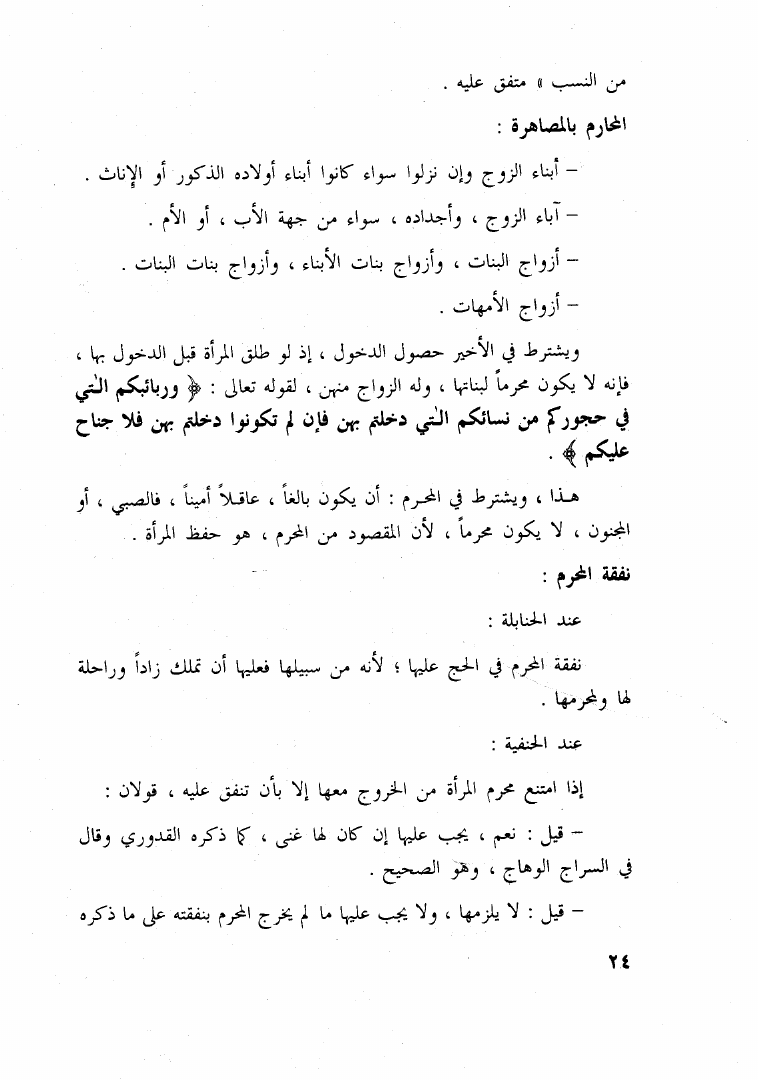 من النسب » متفق عليه .
المحارم بالمصاهرة :
– أبناء الزوج وإن نزلوا سواء كانوا أبناء أولاده الذكور أو الإناث .
– آباء الزوج ، وأجداده ، سواء من جهة الأب ، أو الأم .
– أزواج البنات ، وأزواج بنات الأبناء ، وأزواج بنات البنات .
– أزواج الأمهات .
ويشترط في الأخير حصول الدخول ، إذ لو طلق المرأة قبل الدخول بها ،
فإنه لا يكون محرماً لبناتها ، وله الزواج منهن ، لقوله تعالى : ﴿ وربائبكم الٰتي
في حجوركم من نسائكم الٰتي دخلتم بهن فإن لم تكونوا دخلتم بهن فلا جناح
عليكم ﴾ .
هذا ، ويشترط في المحرم : أن يكون بالغاً ، عاقلاً أميناً ، فالصبي ، أو
المجنون ، لا يكون محرماً ، لأن المقصود من المحرم ، هو حفظ المرأة .
نفقة المحرم :
عند الحنابلة :
نفقة المحرم في الحج عليها ؛ لأنه من سبيلها فعليها أن تملك زاداً وراحلة
لها ولمحرمها .
عند الحنفية :
إذا امتنع محرم المرأة من الخروج معها إلا بأن تنفق عليه ، قولان :
– قيل : نعم ، يجب عليها إن كان لها غنى ، كما ذكره القدوري وقال
في السراج الوهاج ، وهو الصحيح .
– قيل : لا يلزمها ، ولا يجب عليها ما لم يخرج المحرم بنفقته على ما ذكره
٢٤